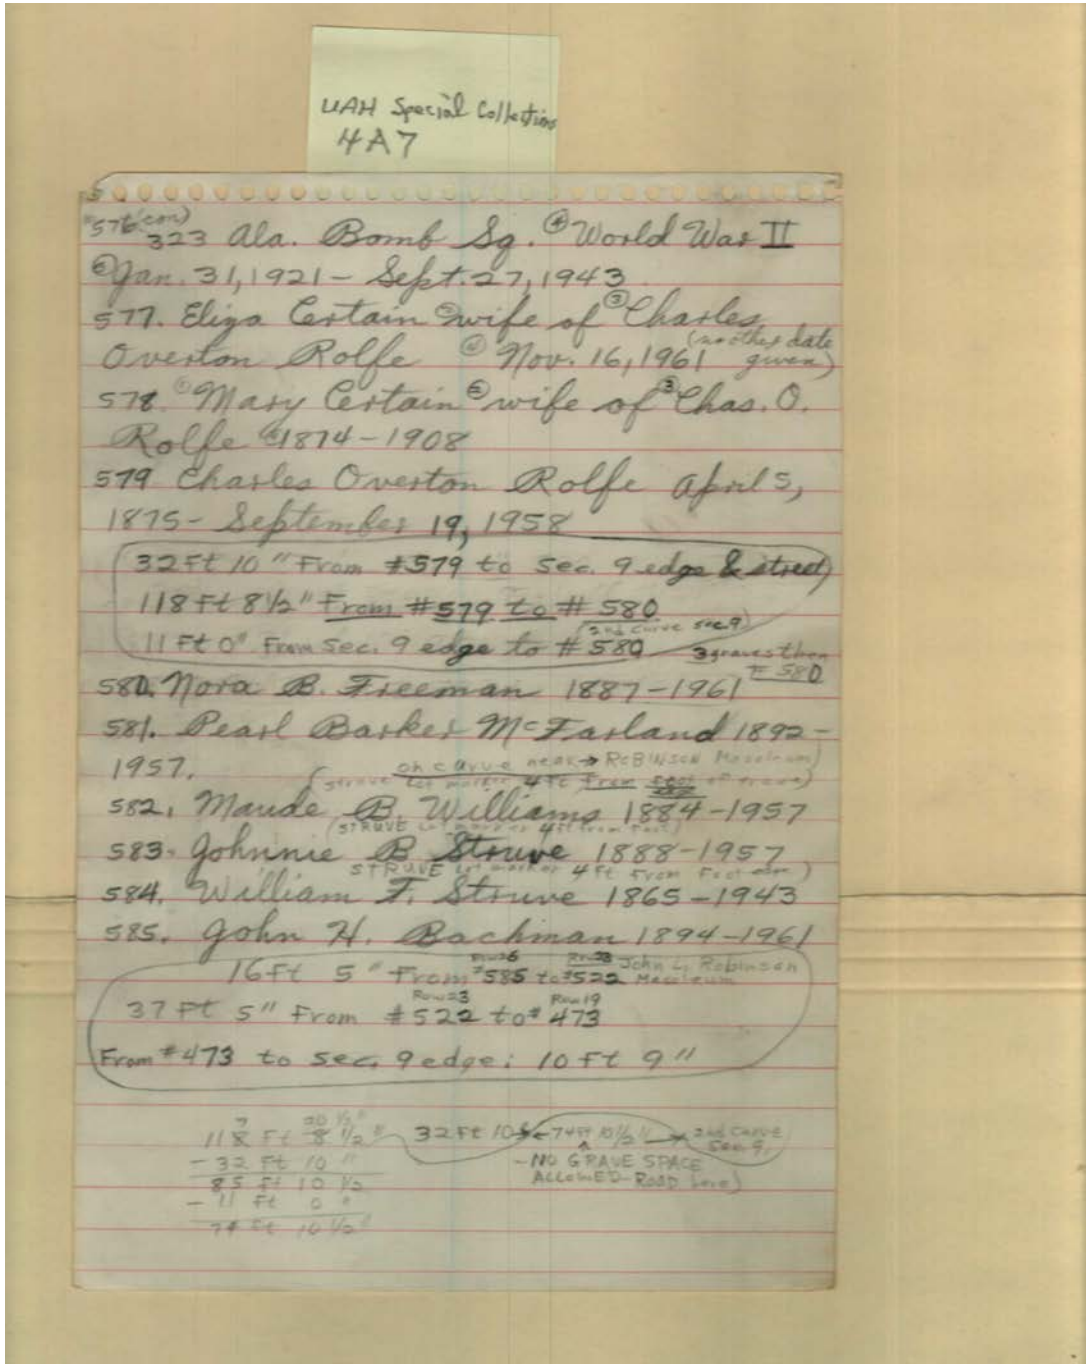 UAH Special Collections
4A7
#576 (con)
323 Ala. Bomb Sq. ④ World War II
⑤ Jan. 31, 1921 - Sept. 27, 1943
577. Eliza Certain ② wife of ③ Charles
Overton Rolfe ④ Nov. 16, 1961 (no other date given)
578. ① Mary Certain ② wife of ③ Chas. O.
Rolfe ④ 1874-1908
579 Charles Overton Rolfe April 5,
1875 - September 19, 1958
32 Ft 10" From #579 to Sec. 9 edge & street
118 Ft 8 1/2" From #579 to #580
(2nd curve sec. 9)
11 Ft 0" From Sec. 9 edge to #580
3 graves then
#580
580. Nora B. Freeman 1887-1961
581. Pearl Barker McFarland 1892-
1957.
on curve near → ROBINSON Mausoleum)
(Struve Lot marker 4 ft From foot of grave)
582. Maude B. Williams 1884-1957
(STRUVE Lot marker 4 ft From foot)
583. Johnnie B Struve 1888-1957
STRUVE Lot marker 4 Ft From Foot)
584. William F. Struve 1865-1943
585. John H. Bachman 1894-1961
Row 26 Row 23 John L. Robinson
16 Ft 5" From #585 to #522 Mausoleum
Row 23 Row 19
37 Ft 5" From #522 to #473
From #473 to Sec. 9 edge: 10 Ft 9"
7 20 1/2"
118 Ft 8 1/2" 32 Ft 10" ← 74 Ft 10 1/2" → 2nd Curve
Sec. 9.
- 32 Ft 10" - NO GRAVE SPACE
85 Ft 10 1/2 ALLOWED - ROAD here)
- 11 Ft 0"
74 Ft 10 1/2"